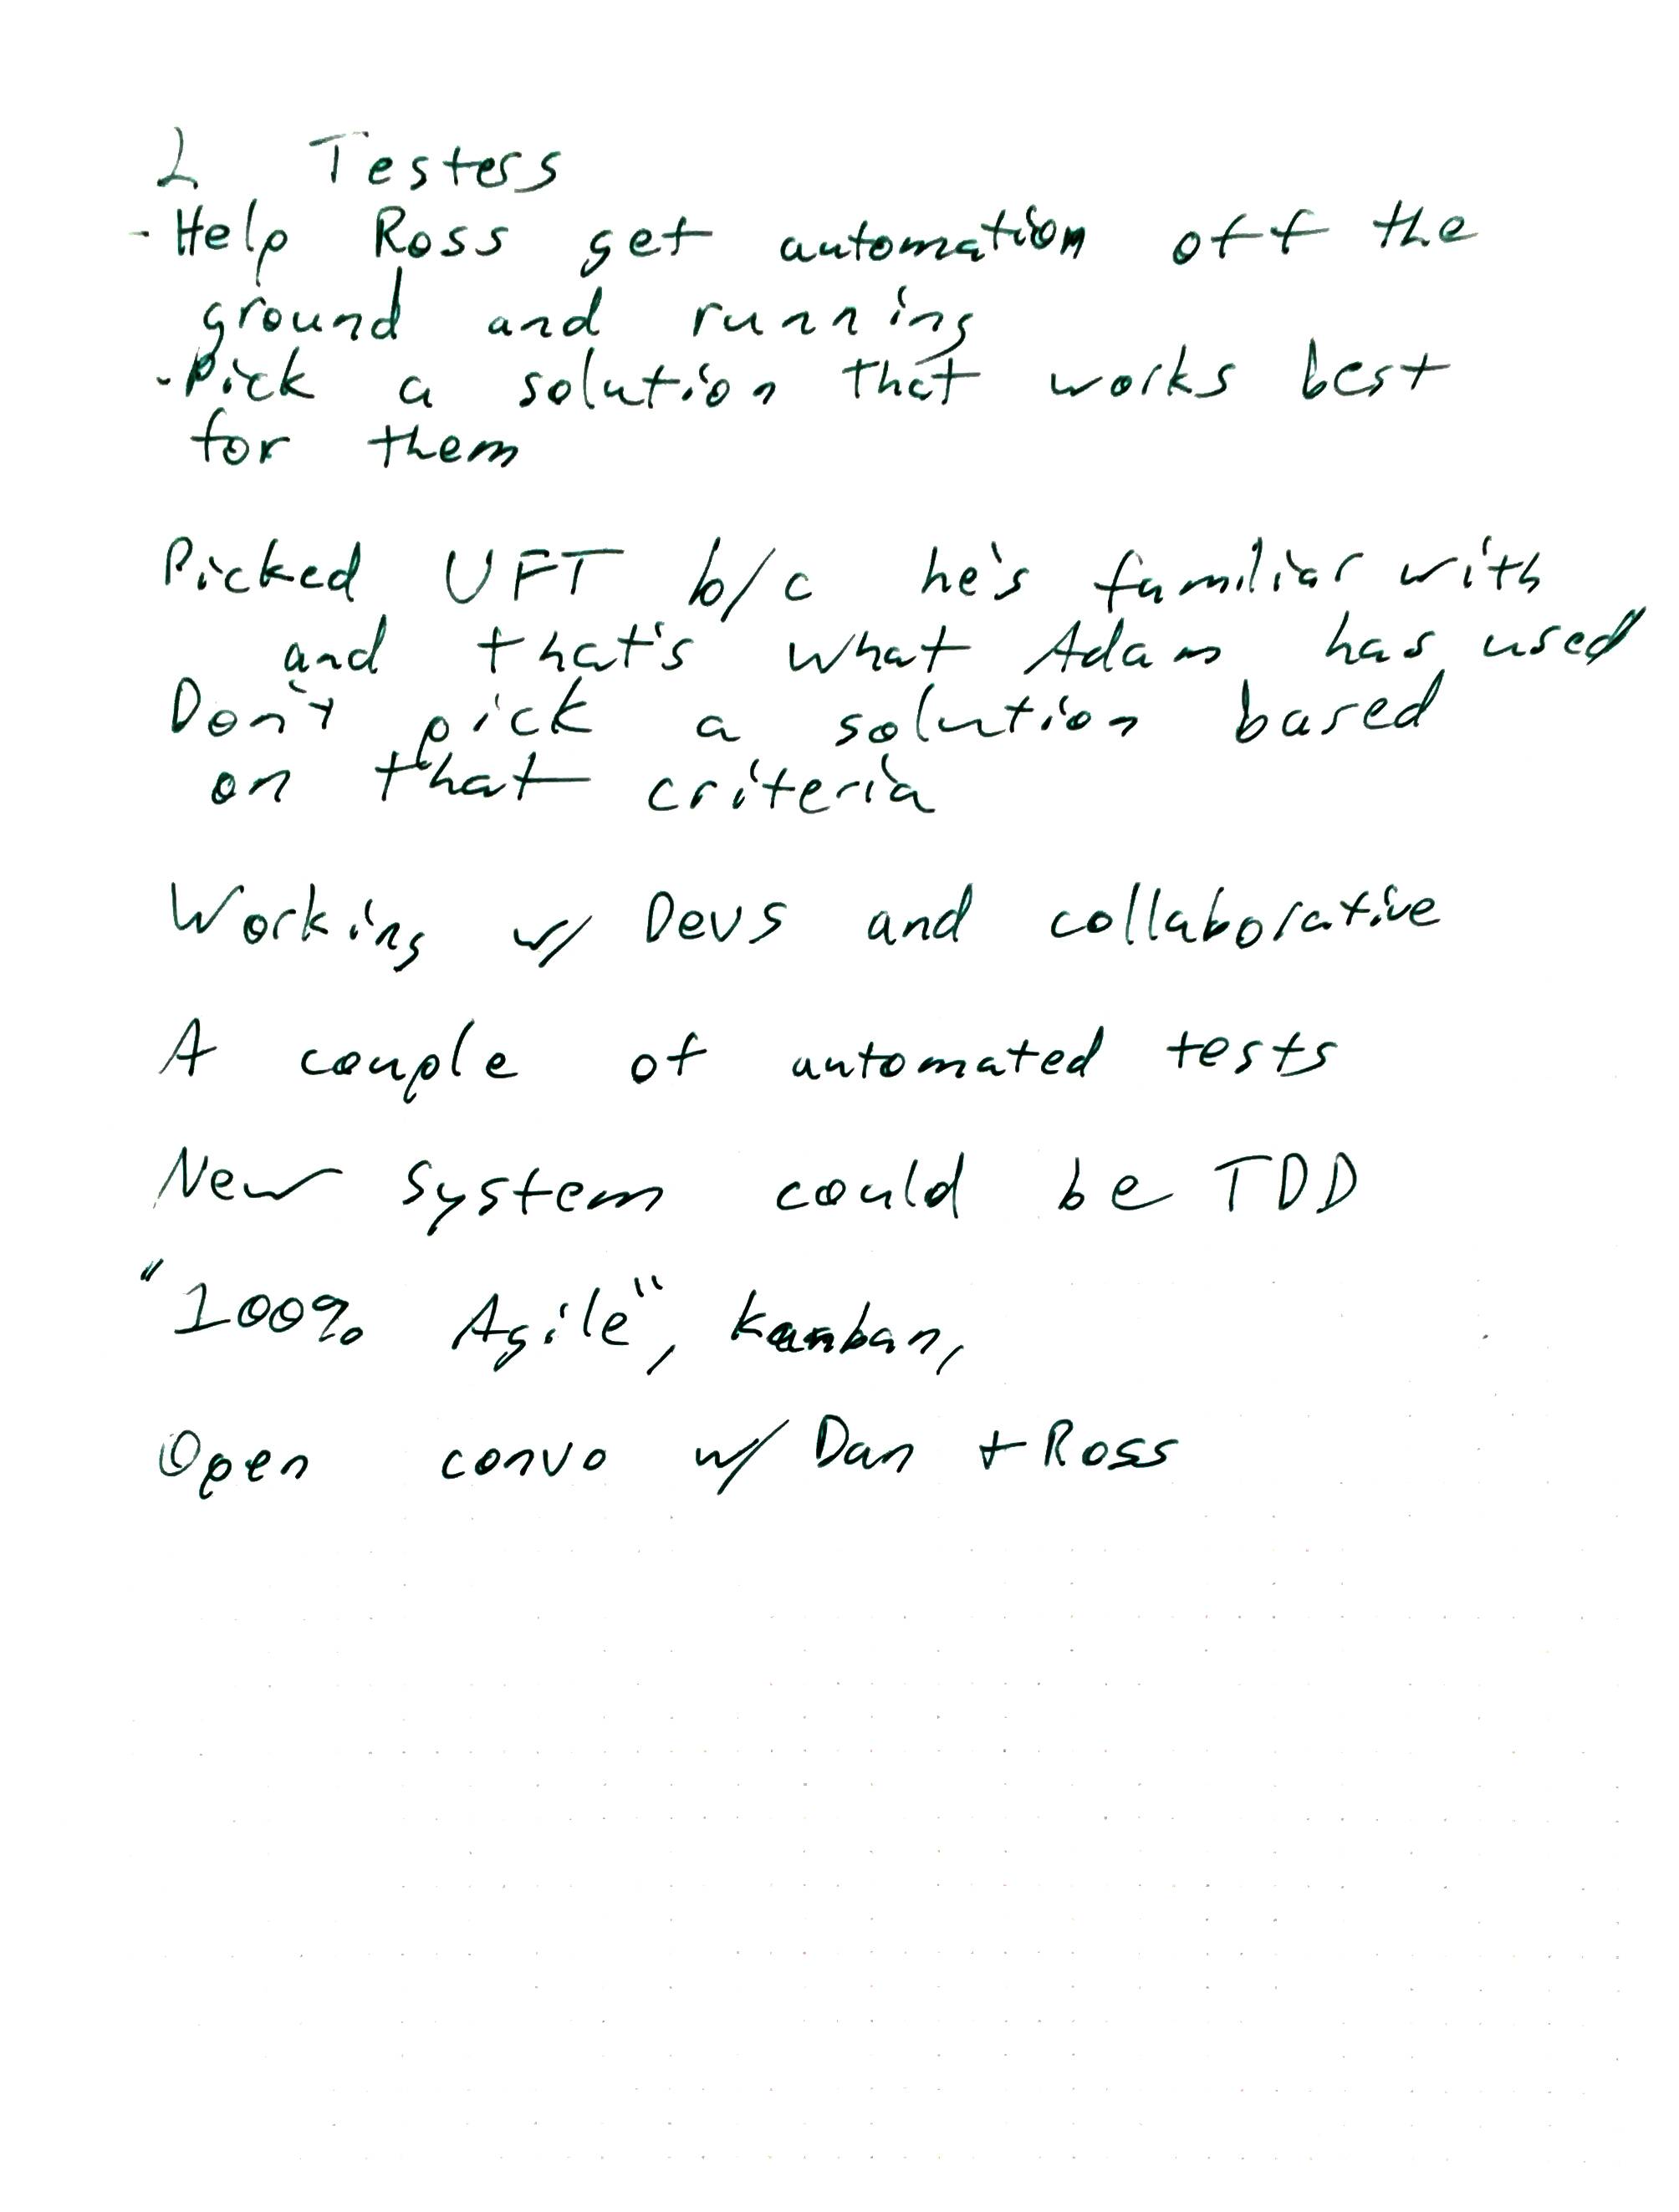 2 Testers
- Help Ross get automation off the
ground and running
- Pick a solution that works best
for them
Picked UFT b/c he's familiar with
and that's what Adam has used
Don't pick a solution based
on that criteria
Working w/ Devs and collaborative
A couple of automated tests
New system could be TDD
"100% Agile", Kanban,
Open convo w/ Dan + Ross